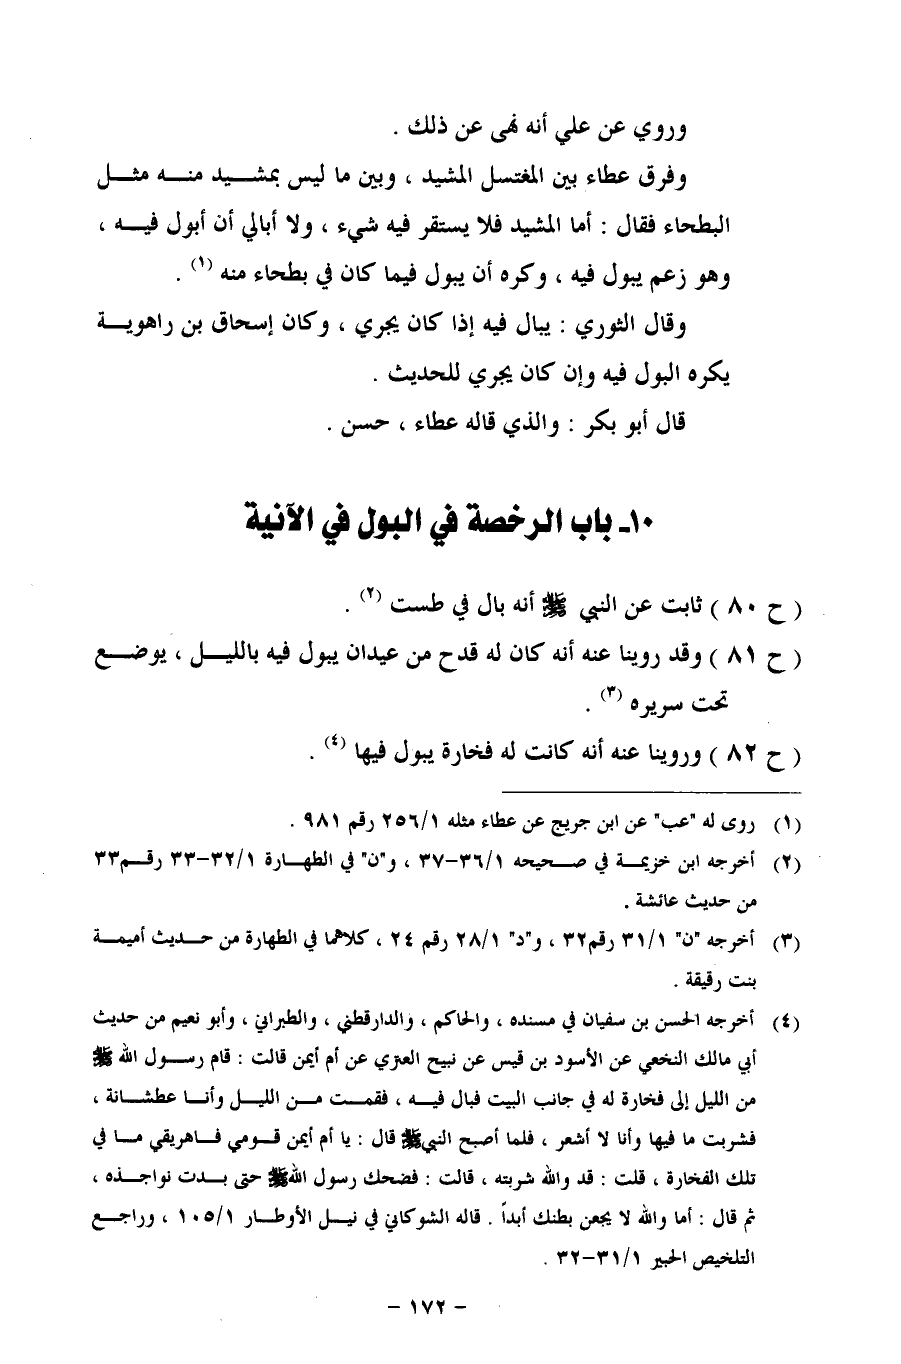 وروي عن علي أنه نهى عن ذلك .
وفرق عطاء بين المغتسل المشيد ، وبين ما ليس بمشيد منه مثل
البطحاء فقال : أما المشيد فلا يستقر فيه شيء ، ولا أبالي أن أبول فيه ،
وهو زعم يبول فيه ، وكره أن يبول فيما كان في بطحاء منه (١) .
وقال الثوري : يبال فيه إذا كان يجري ، وكان إسحاق بن راهوية
يكره البول فيه وإن كان يجري للحديث .
قال أبو بكر : والذي قاله عطاء ، حسن .
١٠ـ باب الرخصة في البول في الآنية
( ح ٨٠ ) ثابت عن النبي ﷺ أنه بال في طست (٢) .
( ح ٨١ ) وقد روينا عنه أنه كان له قدح من عيدان يبول فيه بالليل ، يوضع
تحت سريره (٣) .
( ح ٨٢ ) وروينا عنه أنه كانت له فخارة يبول فيها (٤) .
(١) روى له "عب" عن ابن جريج عن عطاء مثله ٢٥٦/١ رقم ٩٨١ .
(٢) أخرجه ابن خزيمة في صحيحه ٣٦/١-٣٧ ، و"ن" في الطهارة ٣٢/١-٣٣ رقم٣٣
من حديث عائشة .
(٣) أخرجه "ن" ٣١/١ رقم٣٢ ، و"د" ٢٨/١ رقم ٢٤ ، كلاهما في الطهارة من حديث أميمة
بنت رقيقة .
(٤) أخرجه الحسن بن سفيان في مسنده ، والحاكم ، والدارقطني ، والطبراني ، وأبو نعيم من حديث
أبي مالك النخعي عن الأسود بن قيس عن نبيح العنزي عن أم أيمن قالت : قام رسول الله ﷺ
من الليل إلى فخارة له في جانب البيت فبال فيه ، فقمت من الليل وأنا عطشانة ،
فشربت ما فيها وأنا لا أشعر ، فلما أصبح النبيﷺ قال : يا أم أيمن قومي فاهريقي ما في
تلك الفخارة ، قلت : قد والله شربته ، قالت : فضحك رسول اللهﷺ حتى بدت نواجذه ،
ثم قال : أما والله لا يجعن بطنك أبداً . قاله الشوكاني في نيل الأوطار ١٠٥/١ ، وراجع
التلخيص الحبير ٣١/١-٣٢ .
- ١٧٢ -